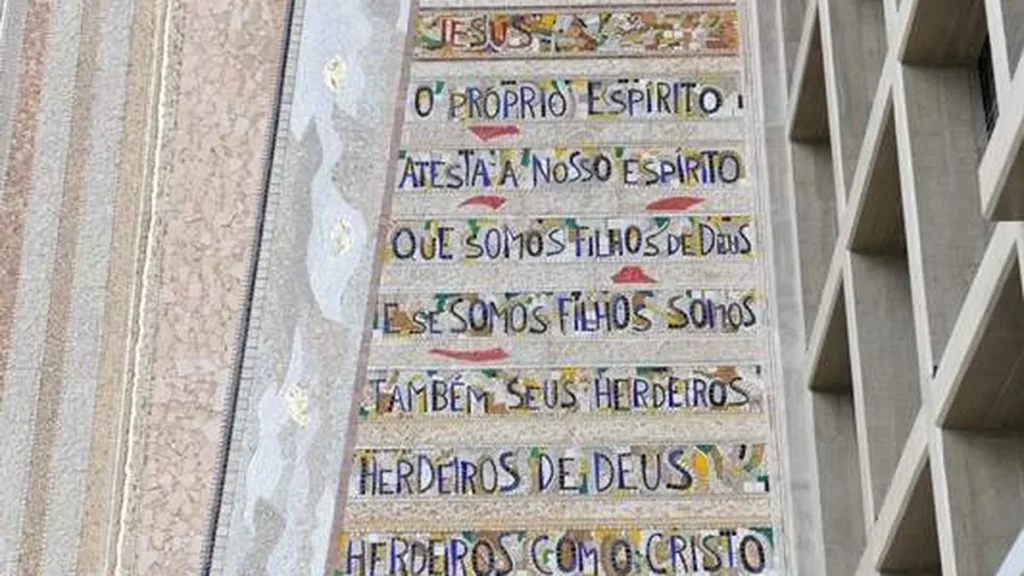 JESUS
O PRÓPRIO ESPÍRITO
ATESTA A NOSSO ESPÍRITO
QUE SOMOS FILHOS DE DEUS
E SE SOMOS FILHOS SOMOS
TAMBÉM SEUS HERDEIROS
HERDEIROS DE DEUS
HERDEIROS COM O CRISTO